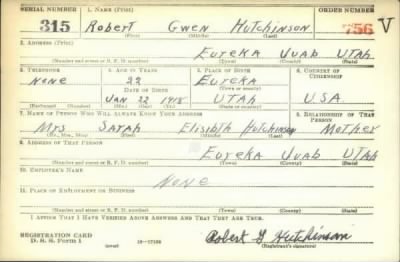 SERIAL NUMBER 1. NAME (Print) ORDER NUMBER
315 Robert Gwen Hutchinson 756 V
(First) (Middle) (Last)
2. ADDRESS (Print)
Eureka Juab Utah
(Number and street or R. F. D. number) (Town) (County) (State)
3. TELEPHONE 4. AGE IN YEARS 5. PLACE OF BIRTH 6. COUNTRY OF CITIZENSHIP
None 22 Eureka
DATE OF BIRTH (Town or county)
Jan 22 1918 Utah U.S.A.
(Exchange) (Number) (Mo.) (Day) (Yr.) (State or country)
7. NAME OF PERSON WHO WILL ALWAYS KNOW YOUR ADDRESS 8. RELATIONSHIP OF THAT PERSON
Mrs Sarah Elisibth Hutchinson Mother
(Mr., Mrs., Miss) (First) (Middle) (Last)
9. ADDRESS OF THAT PERSON
Eureka Juab Utah
(Number and street or R. F. D. number) (Town) (County) (State)
10. EMPLOYER'S NAME
None
11. PLACE OF EMPLOYMENT OR BUSINESS
(Number and street or R. F. D. number) (Town) (County) (State)
I AFFIRM THAT I HAVE VERIFIED ABOVE ANSWERS AND THAT THEY ARE TRUE.
REGISTRATION CARD
D. S. S. Form 1 16-17105 Robert G Hutchinson
(Registrant's signature)